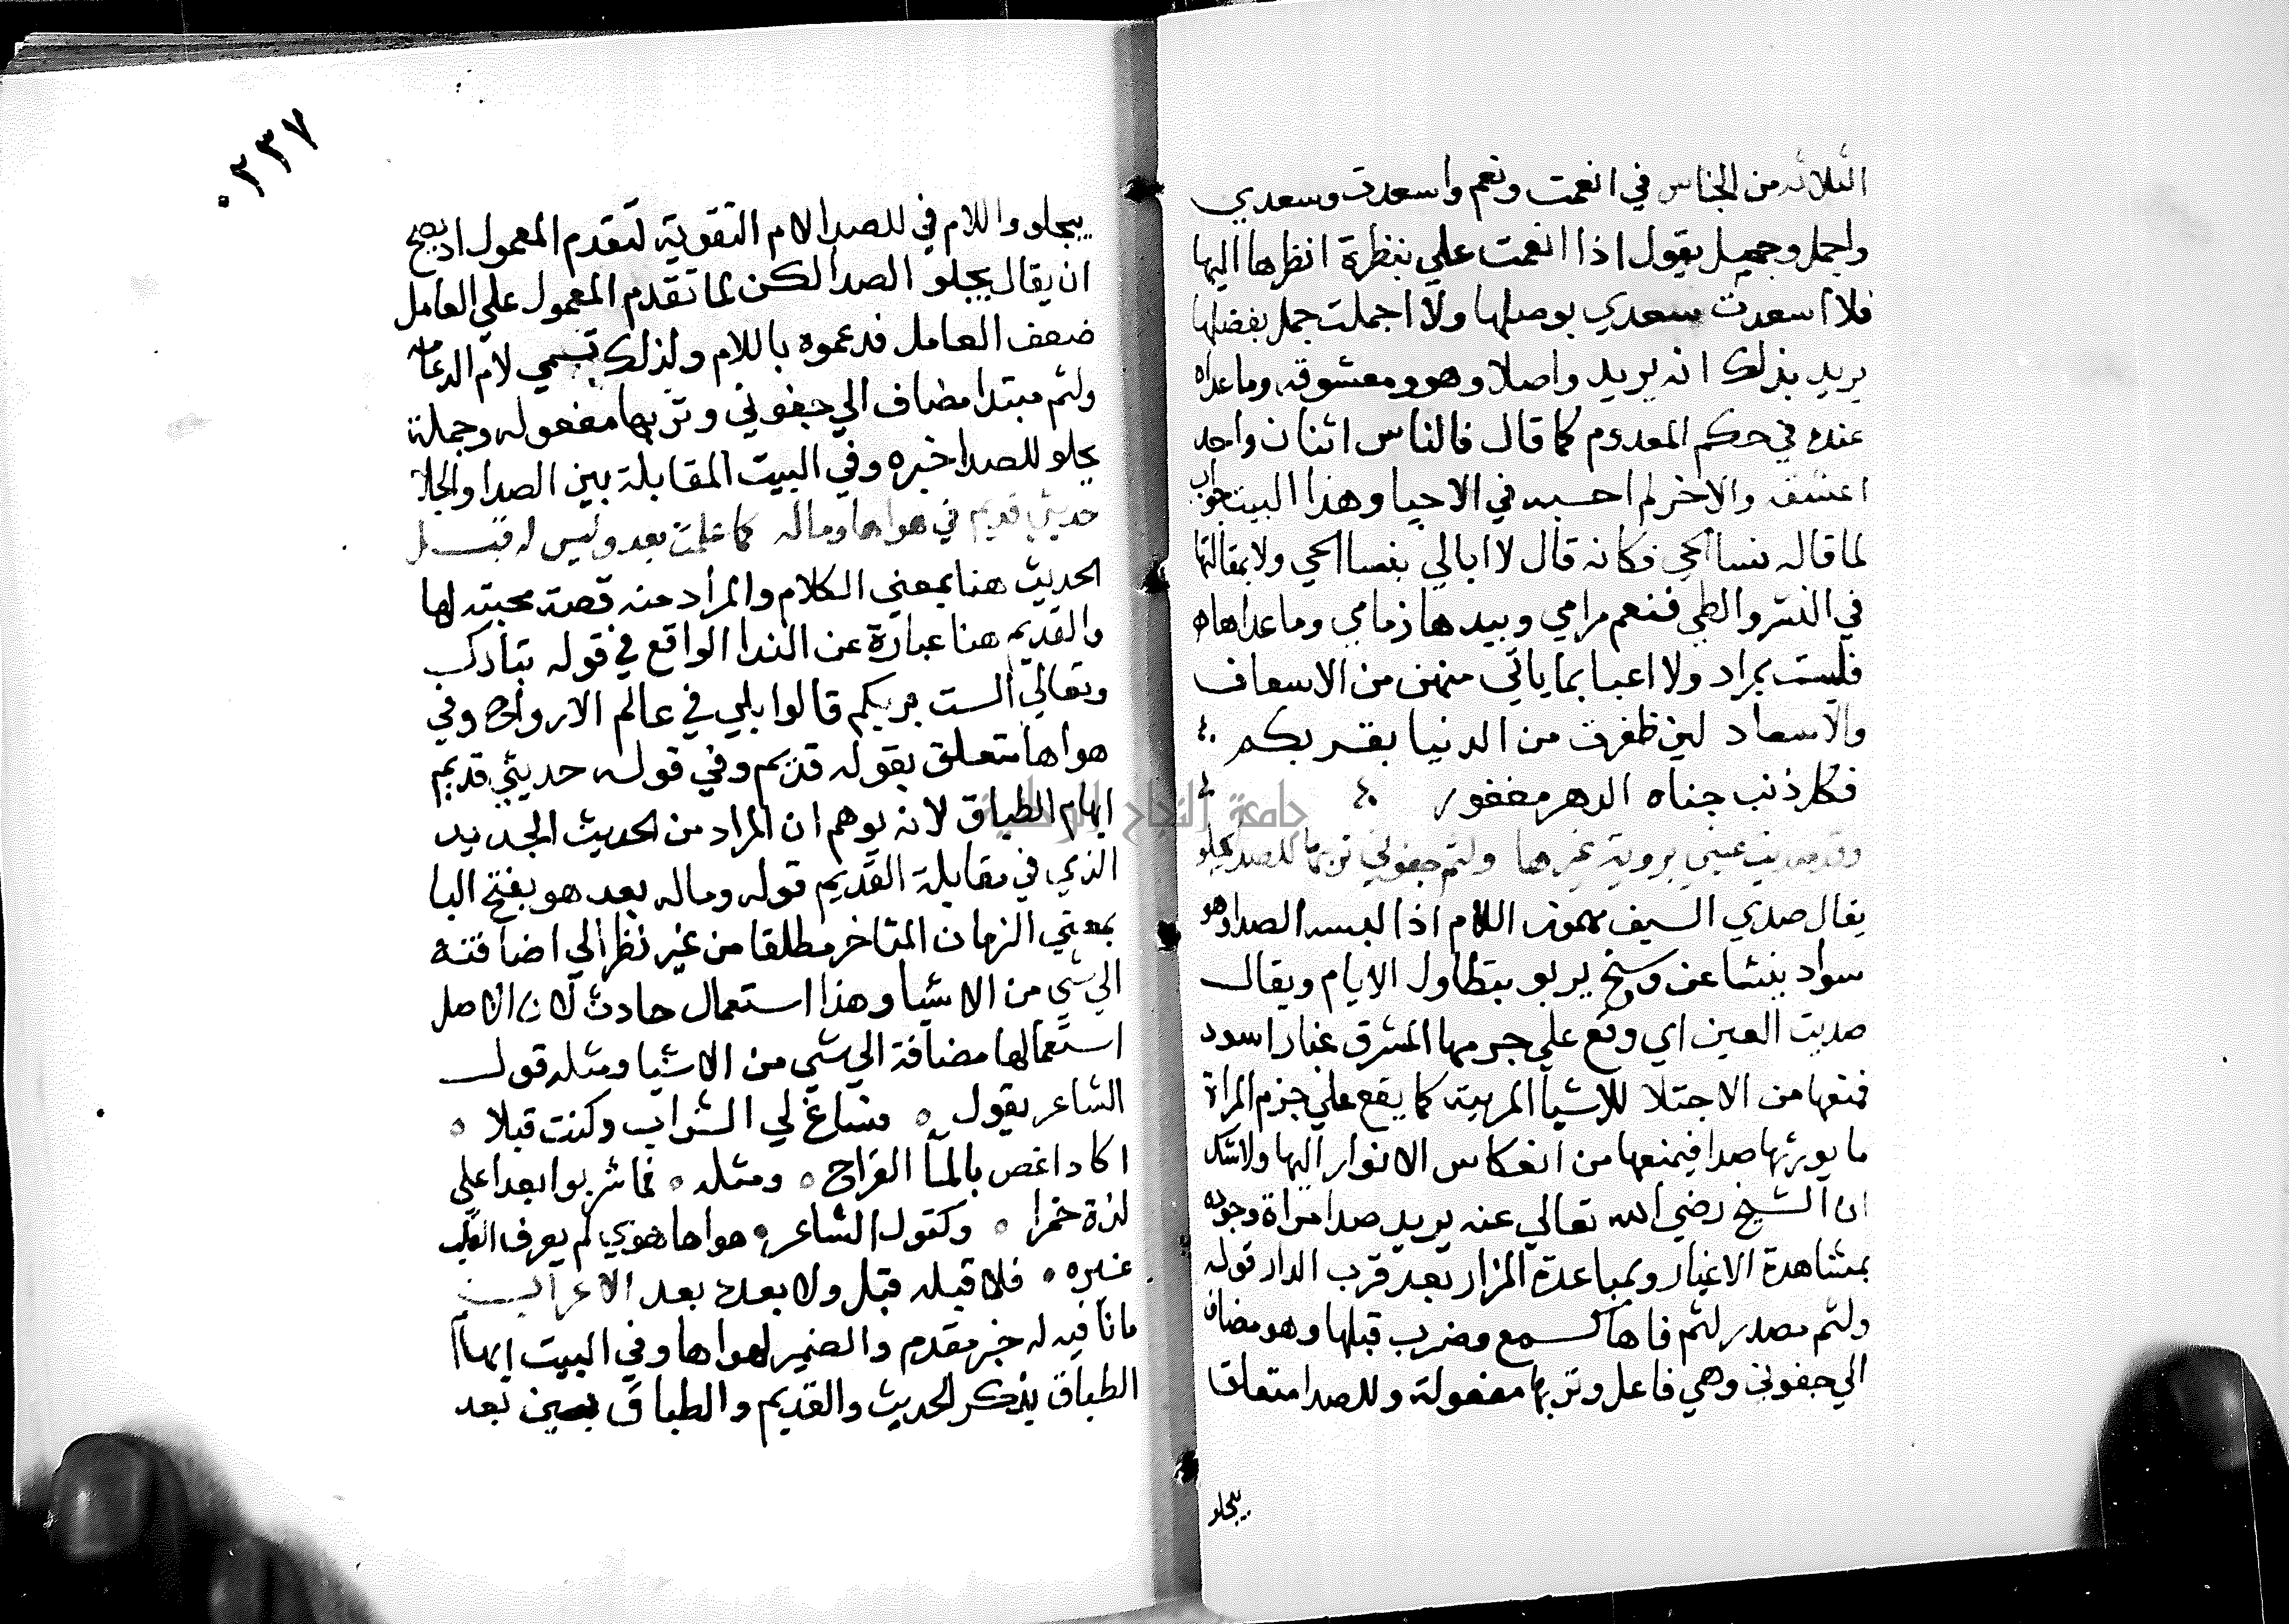 الثلاثه من الجناس في انعمت ونعم واسعدت وسعدي
واجمل وجميل يقول اذا انعمت علي بنظرة انظرها اليها
فلا اسعدت سعدي بوصلها ولا اجملت جمل بفضلها
يريد بذلك انه يريد واصلا وهو ومعشوقه وما عداه
عنده في حكم المعدوم كما قال فالناس اثنان واحد
اعشق والاخر لم احسبه في الاحيا وهذا البيت جواب
لما قاله نسا الحي فكانه قال لا ابالي بنسا الحي ولا بمقالتها
في النشر والطي فنعم مرامي وبيدها زمامي وما عداها
فليست بمراد ولا اعبا بما ياتي منهن من الاسعاف
والاسعاد لين ظفرت من الدنيا بقربكم
فكل ذنب جناه الدهر مغفور
وقد صديت عيني بروية غيرها ولثم جفوني تربها للصدا يجلو
يقال صدي السيف مهموز اللام اذا لبسه الصدا وهو
سواد ينشا عن وسخ يربو بتطاول الايام ويقال
صديت العين اي وقع علي جرمها المشرق غبار اسود
فمنعها من الاجتلا للاشيا المرييه كما يقع علي جرم المراة
ما يورثها صدا فيمنعها من انعكاس الانوار اليها ولا شك
ان الشيخ رضي الله تعالي عنه يريد صدا مراة وجوده
بمشاهدة الاغيار وبمباعدة المزار بعد قرب الدار قوله
ولثم مصدر لثم فاها كسمع وضرب قبلها وهو مضاف
الي جفوني وهي فاعل وتربها مفعوله وللصدا متعلق
يجلو
٢٣٧
بيجلو واللام في للصدا لام التقوية لتقدم المعمول اذ يصح
ان يقال يجلو الصدا لكن لما تقدم المعمول علي العامل
ضعف العامل فدعموه باللام ولذلك تسمي لام الدعامه
ولثم مبتدا مضاف الي جفوني وتربها مفعوله وجملة
يجلو للصدا خبره وفي البيت المقابلة بين الصدا والجلا
حديثي قديم في هواها وماله كما علمت بعد وليس له قبل
الحديث هنا بمعني الكلام والمراد منه قصة محبته لها
والقديم هنا عبارة عن الندا الواقع في قوله تبارك
وتعالي الست بربكم قالوا بلي في عالم الارواح وفي
هواها متعلق بقوله قديم وفي قوله حديثي قديم
ايهام الطباق لانه يوهم ان المراد من الحديث الجديد
الذي في مقابلة القديم قوله وماله بعد هو بفتح البا
بمعني الزمان المتاخر مطلقا من غير نظر الي اضافته
الي شي من الاشيا وهذا استعمال حادث لان الاصل
استعمالها مضافة الي شي من الاشيا ومثله قول
الشاعر يقول ه فساغ لي الشراب وكنت قبلا ه
اكاد اغص بالماء القراح ه ومثله ه فما شربوا بعدا علي
لذة خمرا ه وكقول الشاعر ه هواها هوي لم يعرف القلب
غيره ه فلا قبله قبل ولا بعده بعد الاعراب
ما نافيه له خبر مقدم والضمير لهواها وفي البيت ايهام
الطباق بذكر الحديث والقديم والطباق بين بعد
جامعة النجاح الوطنية